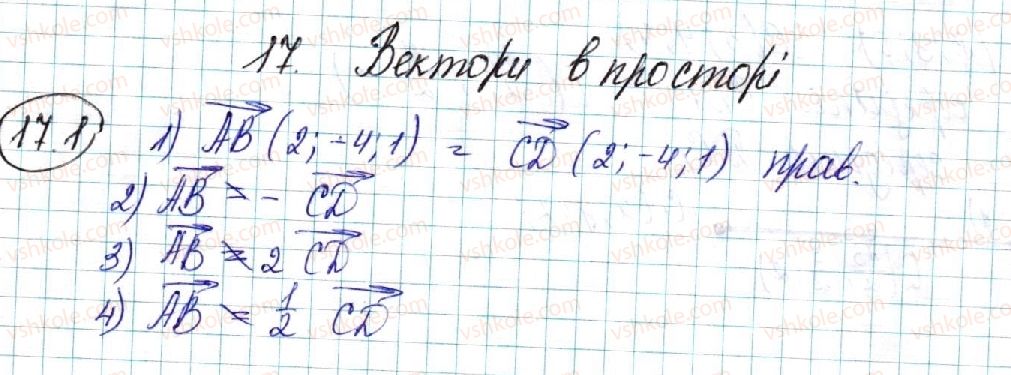 17. Вектори в просторі
17.1 1) AB (2; -4; 1) = CD (2; -4; 1) прав.
2) AB = - CD
3) AB = 2 CD
4) AB = 1/2 CD
vshkole.com